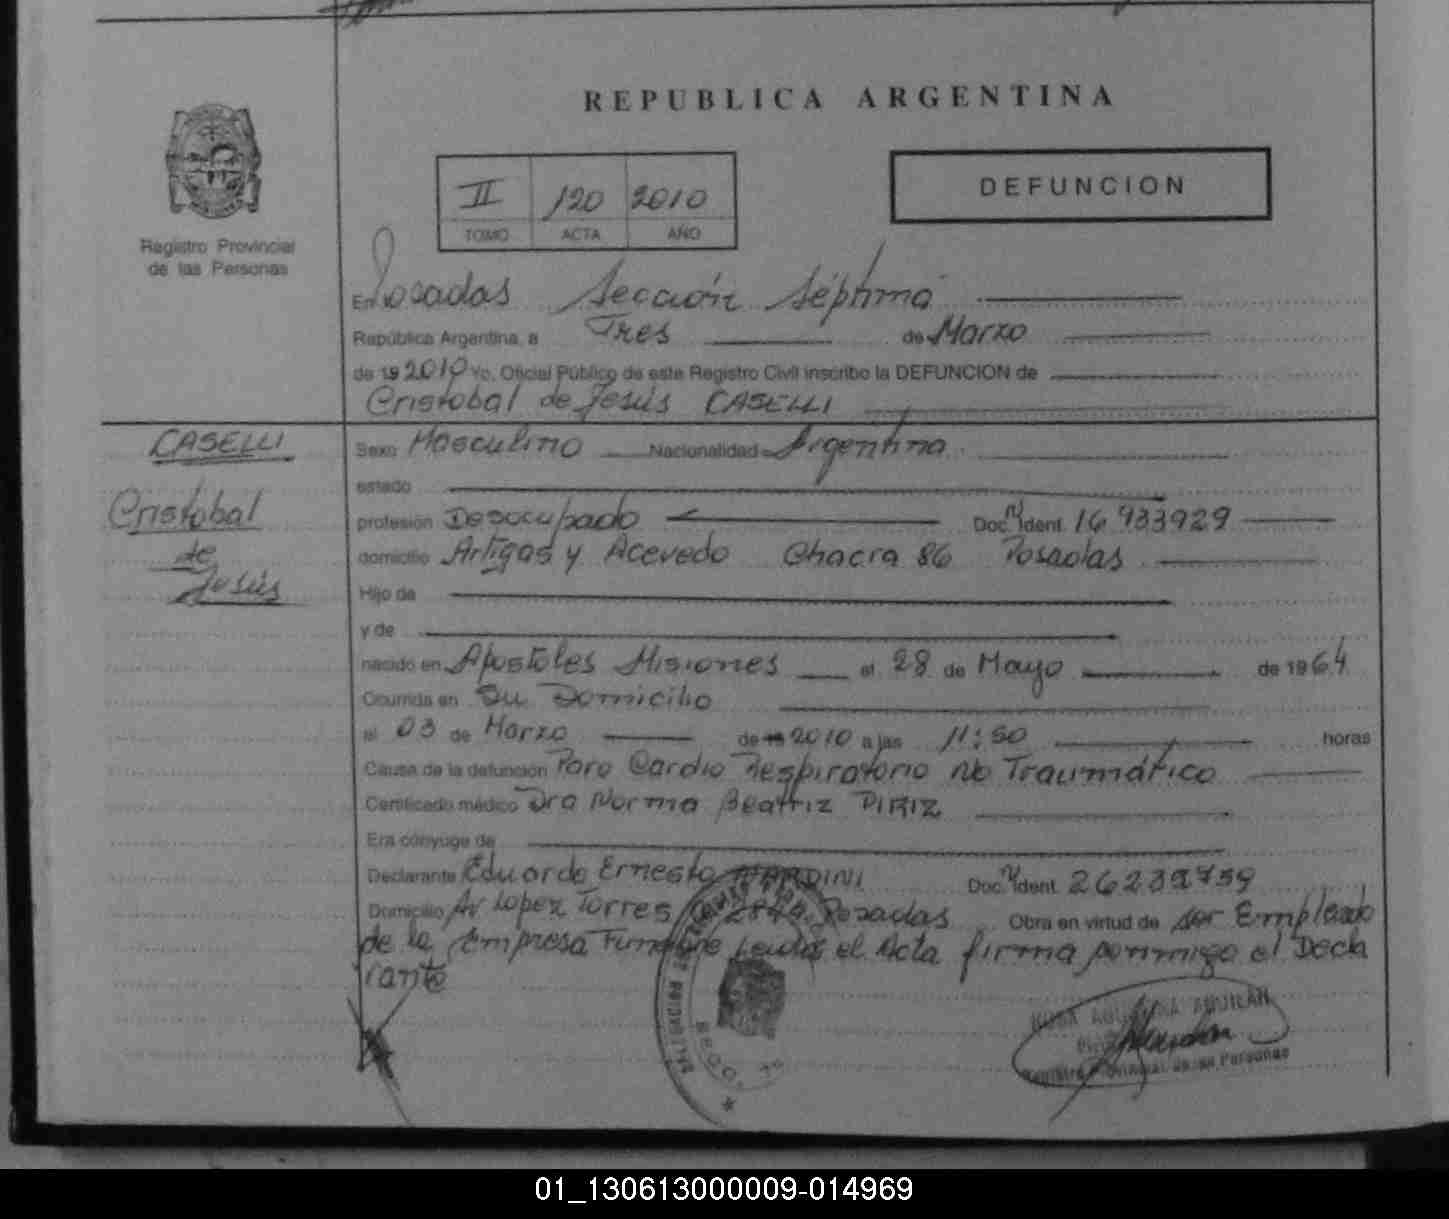 REPUBLICA ARGENTINA
Registro Provincial
de las Personas
II 120 2010
TOMO ACTA AÑO
DEFUNCION
En Posadas Sección Séptima
República Argentina, a Tres de Marzo
de 19 2010 Yo, Oficial Público de este Registro Civil inscribo la DEFUNCION de
Cristobal de Jesús CASELLI
CASELLI
Cristobal
de
Jesús
Sexo Masculino Nacionalidad Argentina
estado
profesión Desocupado Doc. Ident. 16 933929
domicilio Artigas y Acevedo Chacra 86 Posadas
Hijo de
y de
nacido en Apostoles Misiones el 28 de Mayo de 1964
Ocurrida en Su Domicilio
el 03 de Marzo de 19 2010 a las 11:50 horas
Causa de la defunción Paro Cardio Respiratorio No Traumático
Certificado médico Dra Norma Beatriz PIRIZ
Era cónyuge de
Declarante Eduardo Ernesto Doc. Ident. 26239759
Domicilio Av Lopez Torres Posadas Obra en virtud de ser Empleado
de la Empresa el Acta firma conmigo el Decla
rante
AGUILAR
Registro Provincial de las Personas
01_130613000009-014969